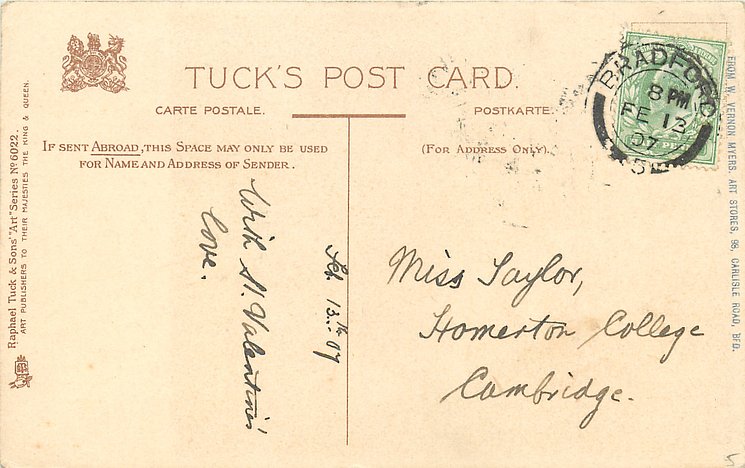 TUCK'S POST CARD.
CARTE POSTALE.
POSTKARTE.
IF SENT ABROAD, THIS SPACE MAY ONLY BE USED
FOR NAME AND ADDRESS OF SENDER.
(FOR ADDRESS ONLY).
BRADFORD
8 PM
FE 13
07
Raphael Tuck & Sons' "Art" Series No 6022.
ART PUBLISHERS TO THEIR MAJESTIES THE KING & QUEEN.
With St. Valentine's
love.
Feb. 13th 07
Miss Taylor,
Homerton College
Cambridge.
FROM W. VERNON MYERS, ART STORES, 98, CARLISLE ROAD, BFD.
5